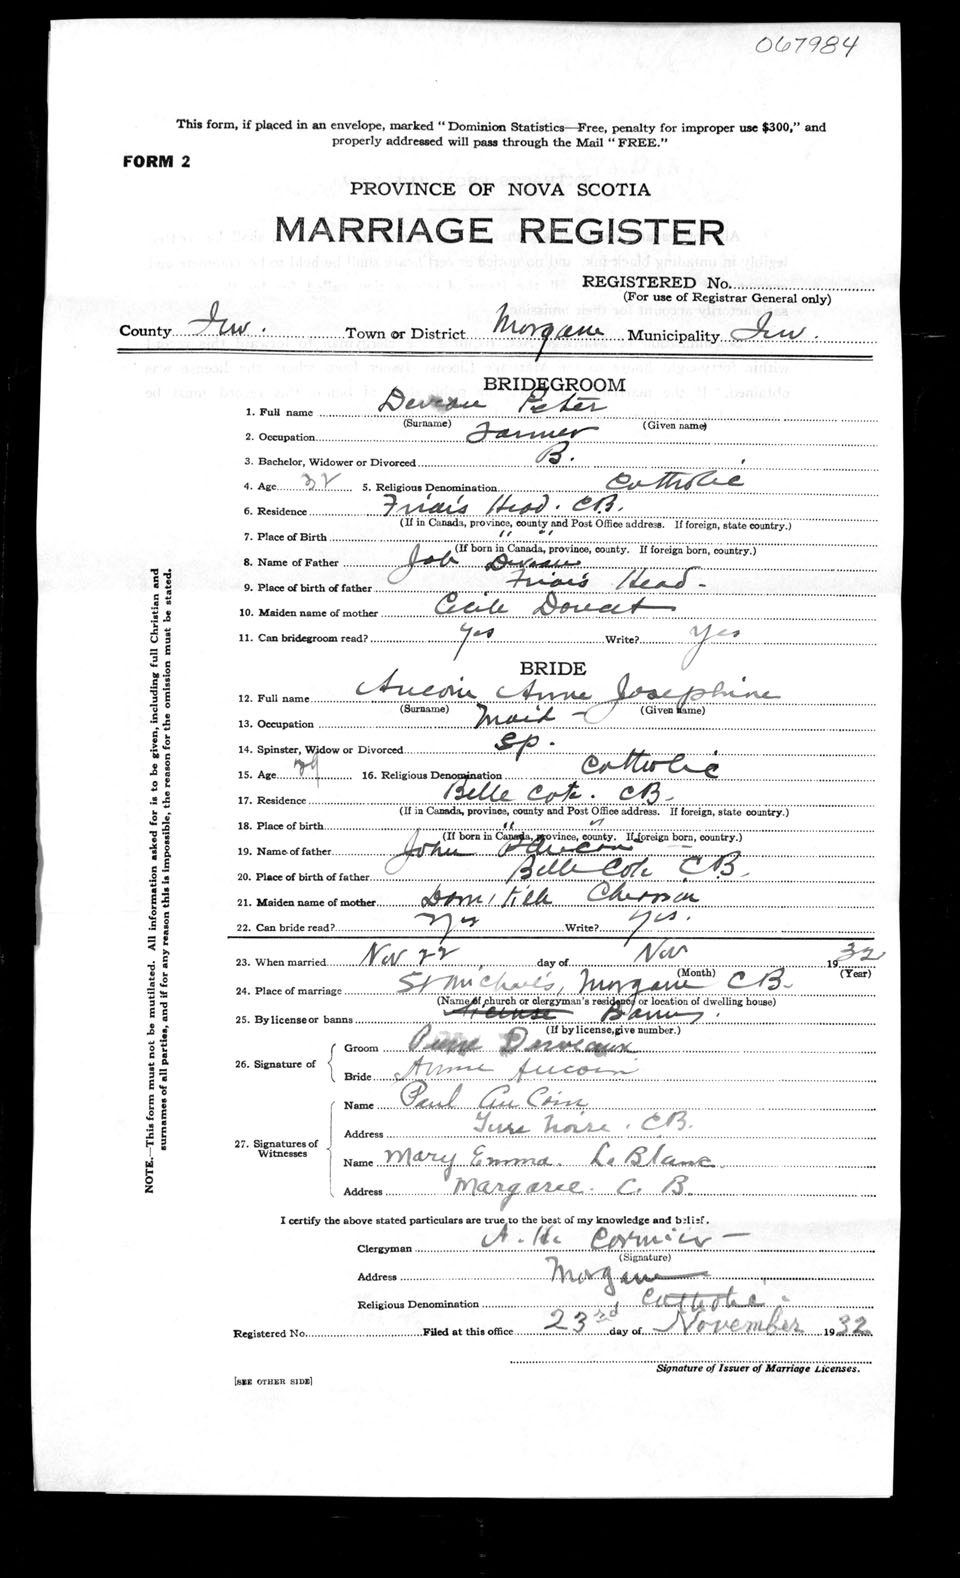 067984
This form, if placed in an envelope, marked "Dominion Statistics—Free, penalty for improper use $300," and
properly addressed will pass through the Mail "FREE."
FORM 2
PROVINCE OF NOVA SCOTIA
MARRIAGE REGISTER
REGISTERED No.
(For use of Registrar General only)
County Inv. Town or District Margaree Municipality Inv.
BRIDEGROOM
1. Full name Deveau Peter
(Surname) (Given name)
2. Occupation Farmer
3. Bachelor, Widower or Divorced B.
4. Age 32 5. Religious Denomination Catholic
6. Residence Friar's Head. C.B.
(If in Canada, province, county and Post Office address. If foreign, state country.)
7. Place of Birth " "
(If born in Canada, province, county. If foreign born, country.)
8. Name of Father Job Deveau
9. Place of birth of father Friar's Head -
10. Maiden name of mother Cecile Doucet
11. Can bridegroom read? yes Write? yes
BRIDE
12. Full name Aucoin Anne Josephine
(Surname) (Given name)
13. Occupation Maid -
14. Spinster, Widow or Divorced Sp.
15. Age 29 16. Religious Denomination Catholic
17. Residence Belle Cote. C.B.
(If in Canada, province, county and Post Office address. If foreign, state country.)
18. Place of birth " "
(If born in Canada, province, county. If foreign born, country.)
19. Name of father John Aucoin
20. Place of birth of father Belle Cote C.B.
21. Maiden name of mother Domitille
22. Can bride read? Yes Write? Yes.
23. When married Nov 22 day of Nov 1932
(Month) (Year)
24. Place of marriage St Michael's, Margaree C.B.
(Name of church or clergyman's residence or location of dwelling house)
25. By license or banns license Banns.
(If by license, give number.)
26. Signature of
Groom Deveaux
Bride Annie Aucoin
27. Signatures of Witnesses
Name Paul AuCoin
Address Terre Noire. C.B.
Name Mary Emma. LeBlanc
Address Margaree. C. B.
I certify the above stated particulars are true to the best of my knowledge and belief.
Clergyman A. H. Cormier -
(Signature)
Address Margaree
Religious Denomination Catholic
Registered No. Filed at this office 23rd day of November 1932
Signature of Issuer of Marriage Licenses.
[SEE OTHER SIDE]
NOTE.—This form must not be mutilated. All information asked for is to be given, including full Christian and
surnames of all parties, and if for any reason this is impossible, the reason for the omission must be stated.